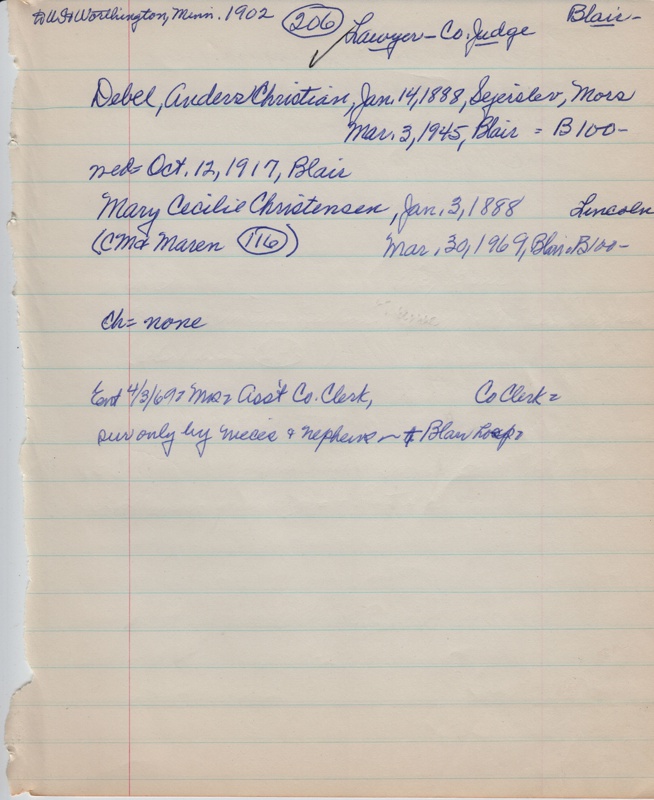 to US= Worthington, Minn. 1902 (206) Lawyer - Co. Judge Blair -
Debel, Anders Christian, Jan. 14, 1888, Sejerslev, Mors
Mar. 3, 1945, Blair = B100-
med= Oct. 12, 1917, Blair
Mary Cecilie Christensen, Jan. 3, 1888 Lincoln
(CM& Maren (116)) Mar. 30, 1969, Blair= B100-
ch= none
Ent 4/3/69= Mrs= Ass't Co. Clerk, Co Clerk=
sur only by nieces & nephews - Blair Hosp=